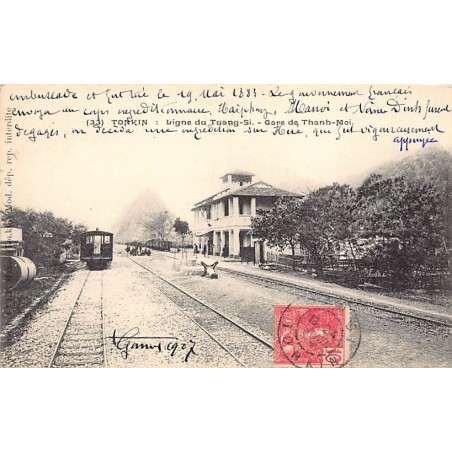 embuscade et fut tué le 19 Mai 1883 - Le gouvernement français
envoya un corps expéditionnaire, Haïphong, Hanoï et Nam Dinh furent
dégagés, on décida une expédition sur Hué, qui fut vigoureusement
appuyée
(33) TONKIN : Ligne du Tuang-Si. - Gare de Thanh-Moi.
dép. rep. interdite
1907